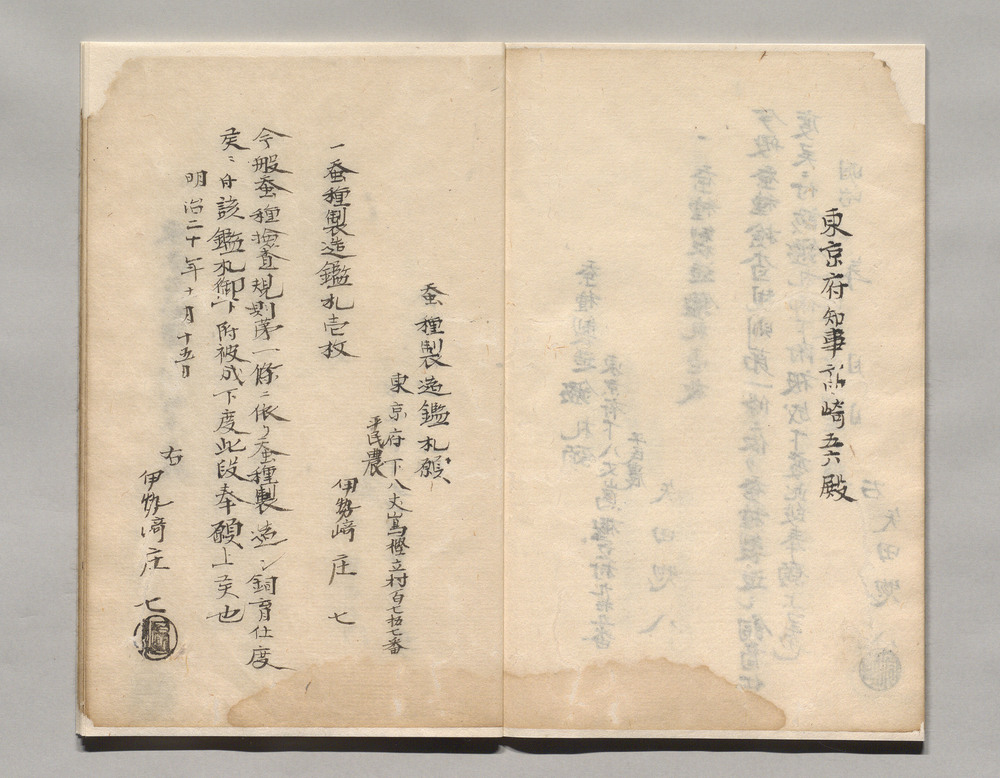 東京府知事高崎五六殿
蚕種製造鑑札願
東京府下八丈島樫立村百七拾七番
平民農
伊勢﨑庄七
一蚕種製造鑑札壱枚
今般蚕種検査規則第一條ニ依リ蚕種製造シ飼育仕度
候ニ付該鑑札御下附被成下度此段奉願上候也
明治二十年十月十五日
右
伊勢﨑庄七